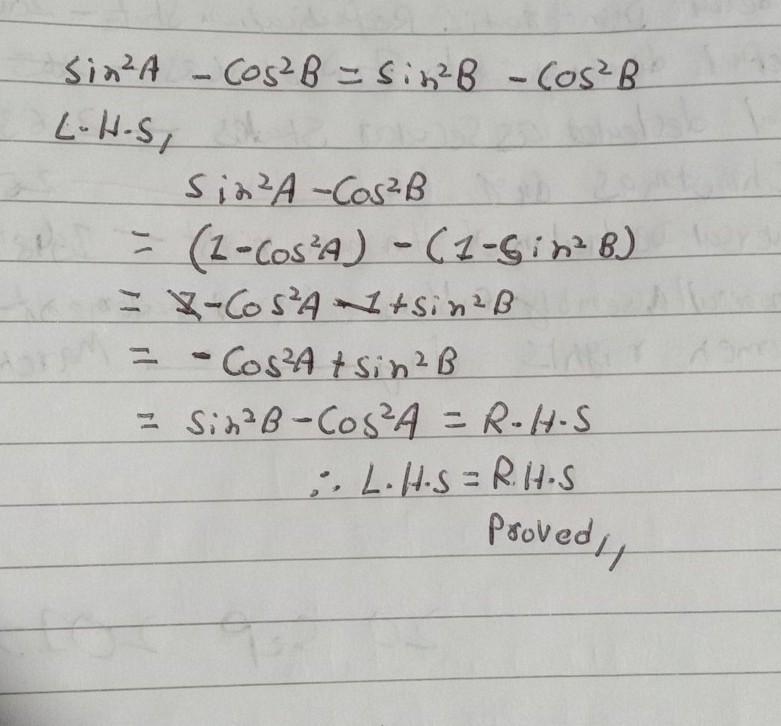 sin²A - cos²B = sin²B - cos²B
L.H.S,
sin²A - cos²B
= (1-cos²A) - (1-sin²B)
= 1-cos²A -1 + sin²B
= - cos²A + sin²B
= sin²B - cos²A = R.H.S
∴ L.H.S = R.H.S
Proved,,